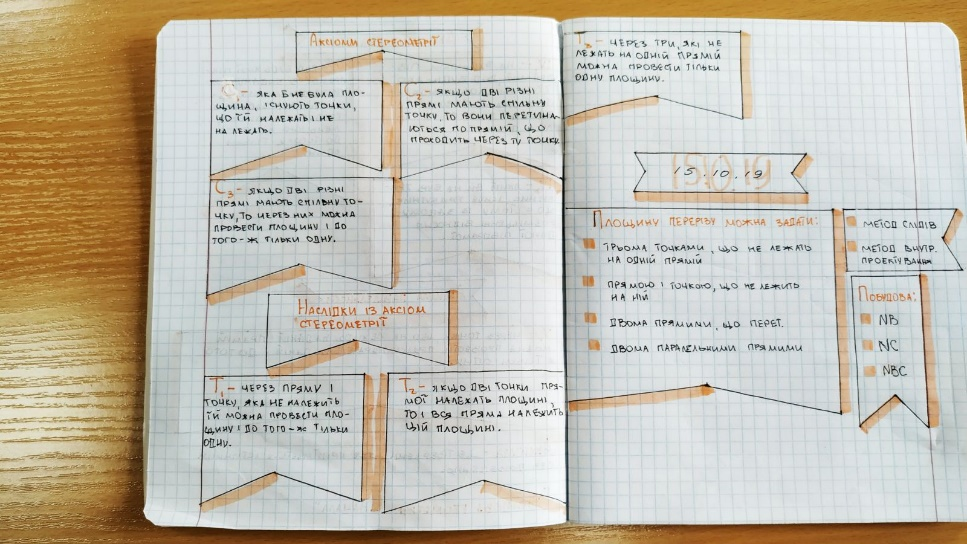 Аксіоми стереометрії
С₁ - яка б не була пло-
щина, існують точки,
що їй належать і не
належать.
С₂ - якщо дві різні
прямі мають спільну
точку, то вони перетина-
ються по прямій, що
проходить через ту точку
С₃ - якщо дві різні
прямі мають спільну то-
чку, то через них можна
провести площину і до
того-ж тільки одну.
Наслідки із аксіом
стереометрії
Т₁ - через пряму і
точку, яка не належить
їй можна провести пло-
щину і до того-ж тільки
одну.
Т₂ - якщо дві точки пря-
мої належать площині,
то і вся пряма належить
цій площині.
Т₃ - через три, які не
лежать на одній прямій
можна провести тільки
одну площину.
15.10.19
Площину перерізу можна задати:
трьома точками, що не лежать
на одній прямій
прямою і точкою, що не лежить
на ній
двома прямими, що перет.
двома паралельними прямими
метод слідів
метод внутр.
проектування
Побудова:
NB
NC
NBC